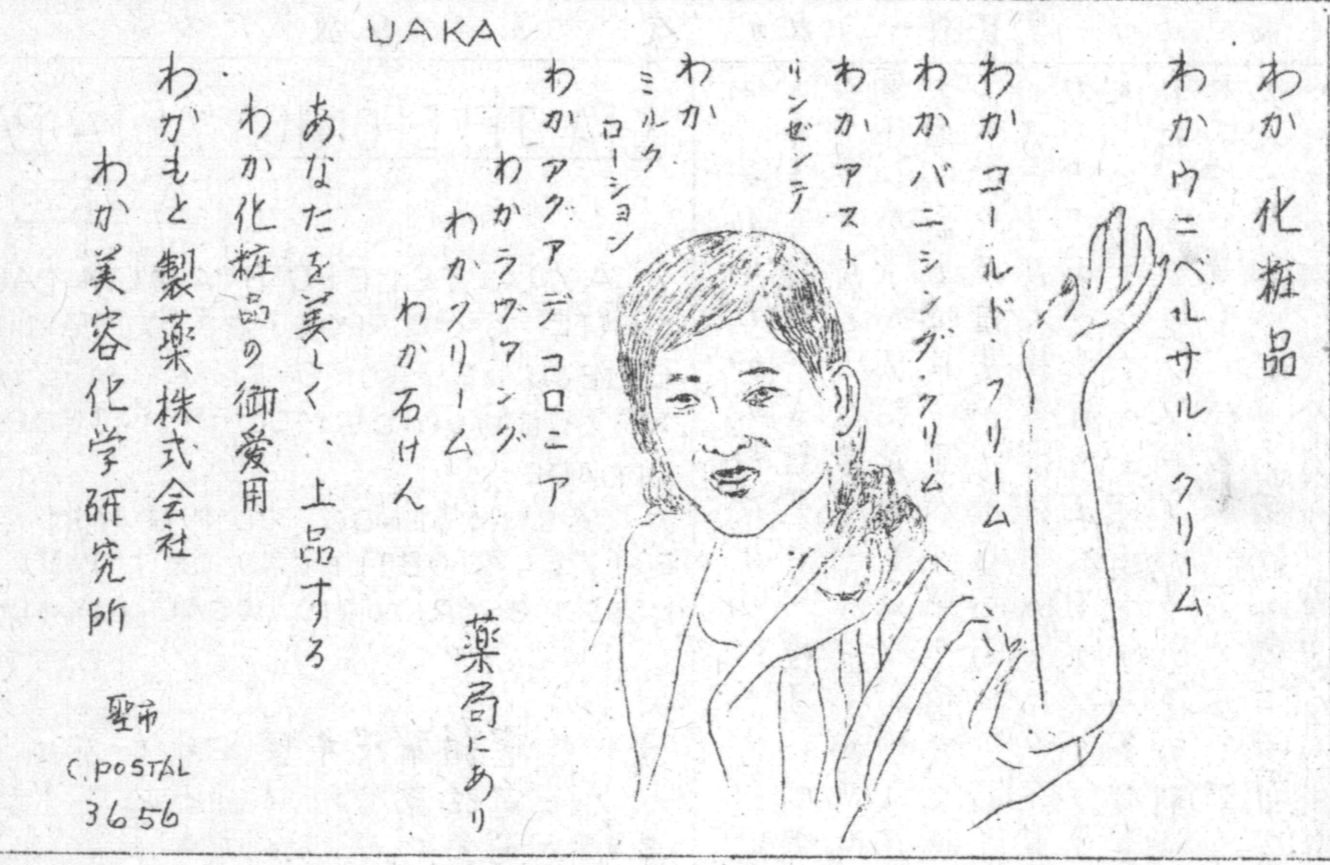 WAKA
わか 化粧品
わかウニベルサル・クリーム
わかコールド・クリーム
わかバニシング・クリーム
わかアスト
リンゼンテ
わか
ミルク
ローション
わかアグアデコロニア
わかラヴアンダ
わかクリーム
わか石けん
薬局にあり
あなたを美しく、上品する
わか化粧品の御愛用
わかもと製薬株式会社
わか美容化学研究所
聖市
C. POSTAL
3656